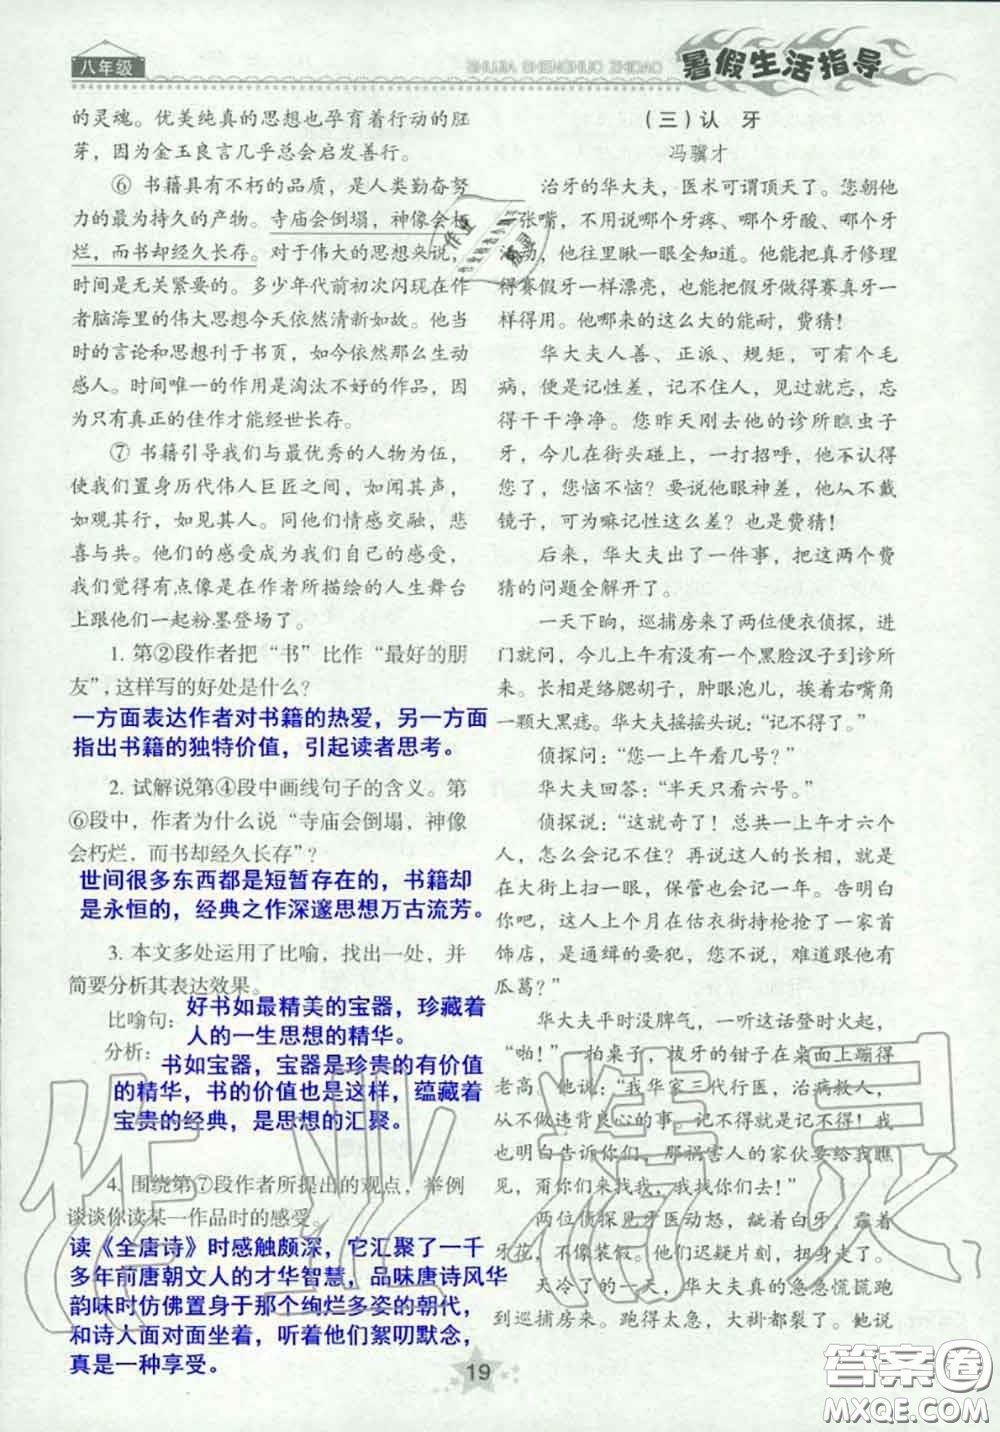 八年级
暑假生活指导
的灵魂。优美纯真的思想也孕育着行动的胚
芽，因为金玉良言几乎总会启发善行。
⑥ 书籍具有不朽的品质，是人类勤奋努
力的最为持久的产物。寺庙会倒塌，神像会朽
烂，而书却经久长存。对于伟大的思想来说，
时间是无关紧要的。多少年代前初次闪现在作
者脑海里的伟大思想今天依然清新如故。他当
时的言论和思想刊于书页，如今依然那么生动
感人。时间唯一的作用是淘汰不好的作品，因
为只有真正的佳作才能经世长存。
⑦ 书籍引导我们与最优秀的人物为伍，
使我们置身历代伟人巨匠之间，如闻其声，
如观其行，如见其人。同他们情感交融，悲
喜与共。他们的感受成为我们自己的感受，
我们觉得有点像是在作者所描绘的人生舞台
上跟他们一起粉墨登场了。
1. 第②段作者把“书”比作“最好的朋
友”，这样写的好处是什么？
一方面表达作者对书籍的热爱，另一方面
指出书籍的独特价值，引起读者思考。
2. 试解说第④段中画线句子的含义。第
⑥段中，作者为什么说“寺庙会倒塌，神像
会朽烂，而书却经久长存”？
世间很多东西都是短暂存在的，书籍却
是永恒的，经典之作深邃思想万古流芳。
3. 本文多处运用了比喻，找出一处，并
简要分析其表达效果。
比喻句：好书如最精美的宝器，珍藏着
人的一生思想的精华。
分析：书如宝器，宝器是珍贵的有价值
的精华，书的价值也是这样，蕴藏着
宝贵的经典，是思想的汇聚。
4. 围绕第⑦段作者所提出的观点，举例
谈谈你读某一作品时的感受。
读《全唐诗》时感触颇深，它汇聚了一千
多年前唐朝文人的才华智慧，品味唐诗风华
韵味时仿佛置身于那个绚烂多姿的朝代，
和诗人面对面坐着，听着他们絮叨默念，
真是一种享受。
（三）认 牙
冯骥才
治牙的华大夫，医术可谓顶天了。您朝他
一张嘴，不用说哪个牙疼、哪个牙酸、哪个牙
活动，他往里瞅一眼全知道。他能把真牙修理
得赛假牙一样漂亮，也能把假牙做得赛真牙一
样得用。他哪来的这么大的能耐，费猜！
华大夫人善、正派、规矩，可有个毛
病，便是记性差，记不住人，见过就忘，忘
得干干净净。您昨天刚去他的诊所瞧虫子
牙，今儿在街头碰上，一打招呼，他不认得
您了，您恼不恼？要说他眼神差，他从不戴
镜子，可为嘛记性这么差？也是费猜！
后来，华大夫出了一件事，把这两个费
猜的问题全解开了。
一天下晌，巡捕房来了两位便衣侦探，进
门就问，今儿上午有没有一个黑脸汉子到诊所
来。长相是络腮胡子，肿眼泡儿，挨着右嘴角
一颗大黑痣。华大夫摇摇头说：“记不得了。”
侦探问：“您一上午看几号？”
华大夫回答：“半天只看六号。”
侦探说：“这就奇了！总共一上午才六个
人，怎么会记不住？再说这人的长相，就是
在大街上扫一眼，保管也会记一年。告明白
你吧，这人上个月在估衣街持枪抢了一家首
饰店，是通缉的要犯，您不说，难道跟他有
瓜葛？”
华大夫平时没脾气，一听这话登时火起，
“啪！”一拍桌子，拔牙的钳子在桌面上蹦得
老高。他说：“我华家三代行医，治病救人，
从不做违背良心的事。记不得就是记不得！我
也明白告诉你们，那祸害人的家伙要给我瞧
见，甭你们来找我，我找你们去！”
两位侦探见牙医动怒，龇着白牙，露着
牙花，不像装假。他们迟疑片刻，扭身走了。
天冷了的一天，华大夫真的急急慌慌跑
到巡捕房来。跑得太急，大褂都裂了。他说
19
作业精灵
答案圈
MXQE.COM